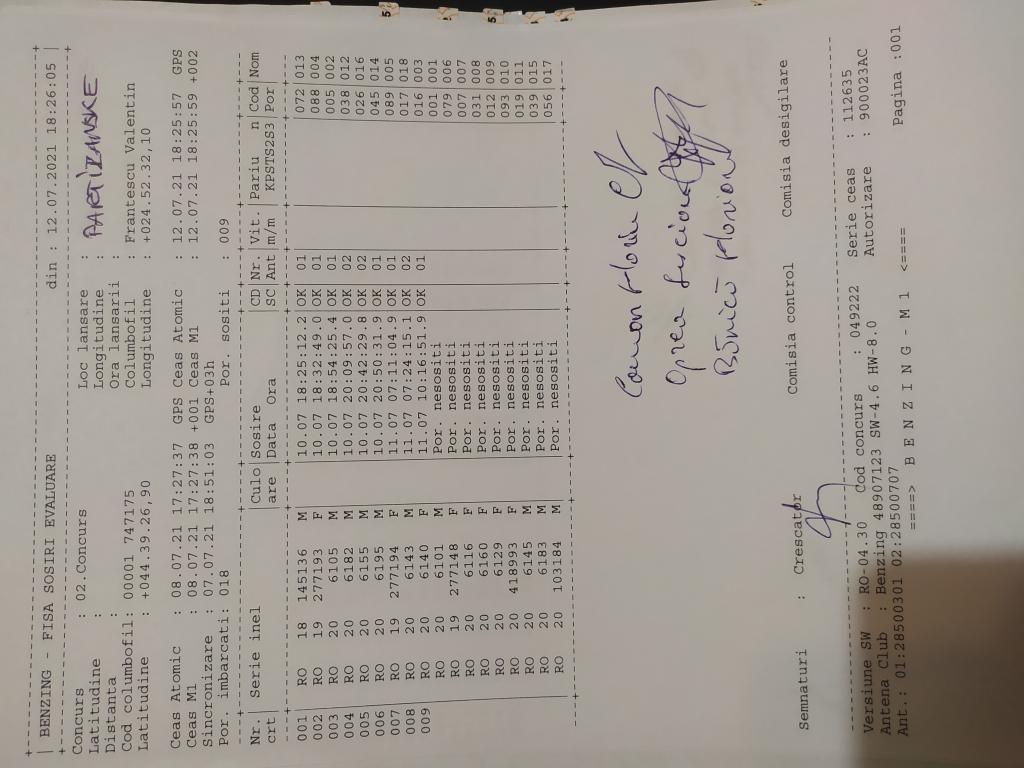 | BENZING - FISA SOSIRI EVALUARE din : 12.07.2021 18:26:05 |
Concurs : 02.Concurs Loc lansare : PARTIZANSKE
Latitudine : Longitudine :
Distanta : Ora lansarii :
Cod columbofil: 00001 747175 Columbofil : Frantescu Valentin
Latitudine : +044.39.26,90 Longitudine : +024.52.32,10
Ceas Atomic : 08.07.21 17:27:37 GPS Ceas Atomic : 12.07.21 18:25:57 GPS
Ceas M1 : 08.07.21 17:27:38 +001 Ceas M1 : 12.07.21 18:25:59 +002
Sincronizare : 07.07.21 18:51:03 GPS+03h
Por. imbarcati: 018 Por. sositi : 009
Nr. | Serie inel |Culo |Sosire |CD |Nr. |Vit. |Pariu n |Cod |Nom
crt | |are |Data Ora |SC |Ant |m/m |KPSTS2S3 |Por |
001 | RO 18 145136 M | |10.07 18:25:12.2 |OK | 01 | | |072 |013
002 | RO 19 277193 F | |10.07 18:32:49.0 |OK | 01 | | |088 |004
003 | RO 20 6105 M | |10.07 18:54:25.4 |OK | 01 | | |005 |002
004 | RO 20 6182 M | |10.07 20:09:57.0 |OK | 02 | | |038 |012
005 | RO 20 6155 M | |10.07 20:42:29.8 |OK | 02 | | |026 |016
006 | RO 20 6195 M | |10.07 20:50:31.9 |OK | 01 | | |045 |014
007 | RO 19 277194 F | |11.07 07:11:04.9 |OK | 01 | | |089 |005
008 | RO 20 6143 M | |11.07 07:24:15.1 |OK | 02 | | |017 |018
009 | RO 20 6140 F | |11.07 10:16:51.9 |OK | 01 | | |016 |003
RO 20 6101 M | |Por. nesositi | | | | |001 |001
RO 19 277148 F | |Por. nesositi | | | | |079 |006
RO 20 6116 F | |Por. nesositi | | | | |007 |007
RO 20 6160 F | |Por. nesositi | | | | |031 |008
RO 20 6129 F | |Por. nesositi | | | | |012 |009
RO 20 418993 F | |Por. nesositi | | | | |093 |010
RO 20 6145 M | |Por. nesositi | | | | |019 |011
RO 20 6183 M | |Por. nesositi | | | | |039 |015
RO 20 103184 M | |Por. nesositi | | | | |056 |017
Oprea
Semnaturi : Crescator Comisia control Comisia desigilare
Versiune SW : RO-04.30 Cod concurs : 049222 Serie ceas : 112635
Antena Club : Benzing 48907123 SW-4.6 HW-8.0 Autorizare : 900023AC
Ant.: 01:28500301 02:28500707
====> B E N Z I N G - M 1 <==== Pagina :001